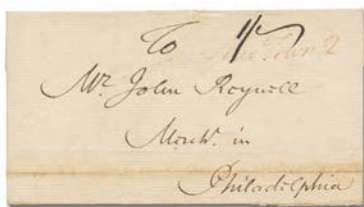 To
Mr. John Reynell
Mercht. in
Philadelphia